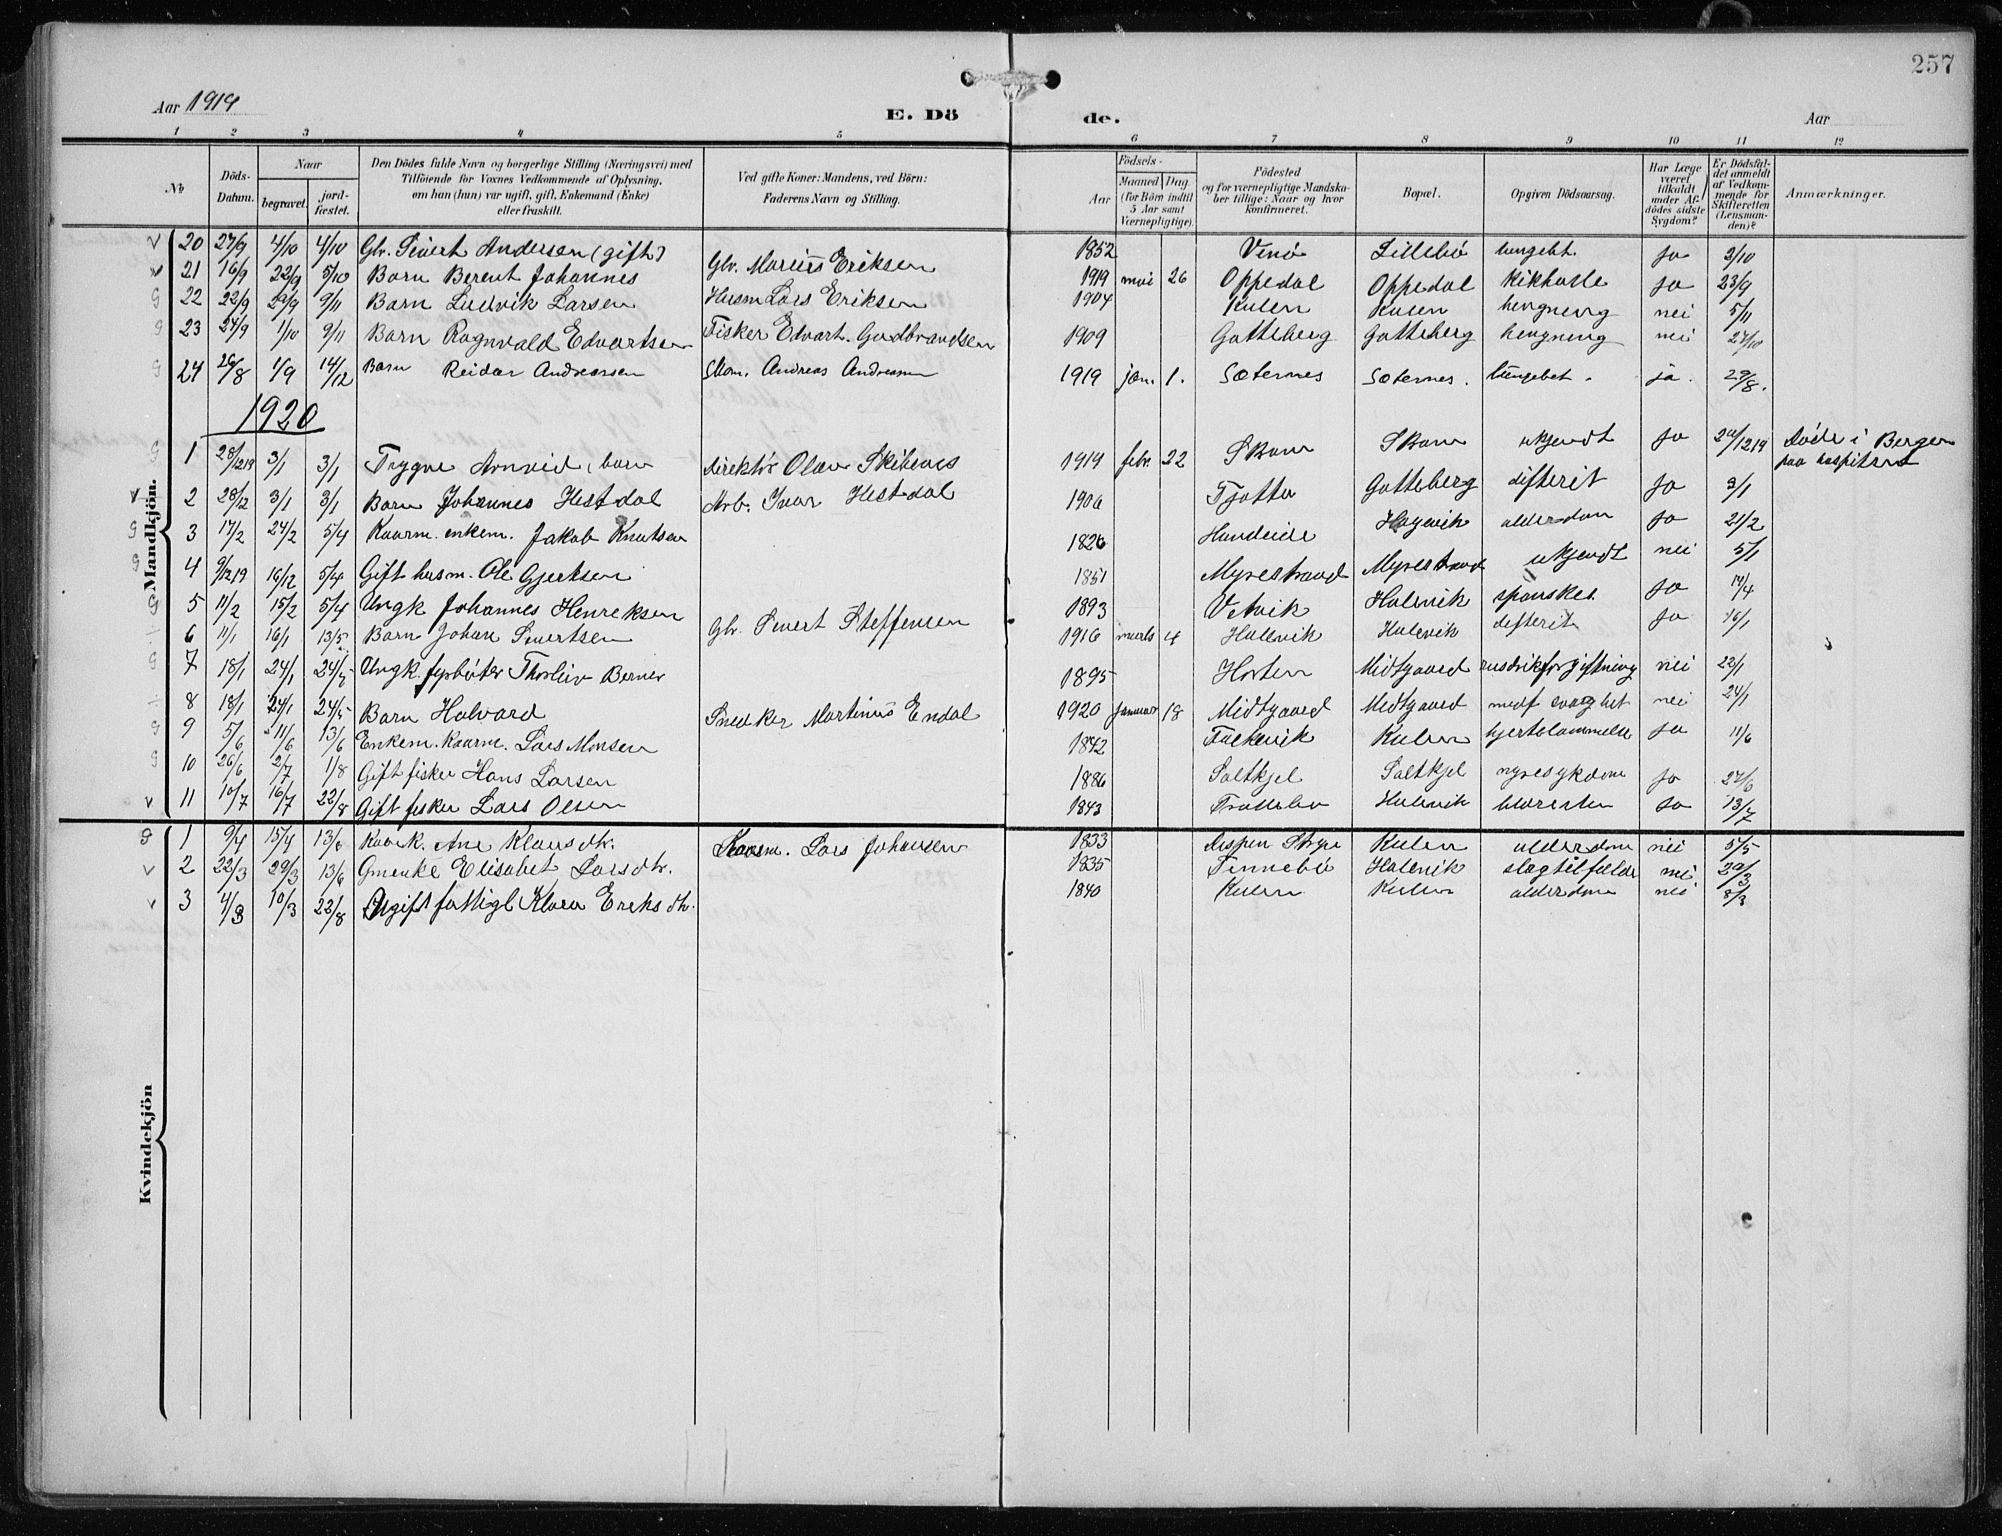 257
Aar 1919
E. Dö de.
Aar
1 2 3 4 5 6 7 8 9 10 11 12
No
Döds-Datum.
Naar
begravet.
jord-fæstet.
Den Dödes fulde Navn og borgerlige Stilling (Næringsvei) med
Tilföiende for Voxnes Vedkommende af Oplysning,
om han (hun) var ugift, gift, Enkemand (Enke)
eller fraskilt.
Ved gifte Koner: Mandens, ved Börn:
Faderens Navn og Stilling.
Födsels-
Aar
Maaned
Dag
(for Börn indtil
5 Aar samt
Værnepligtige).
Födested
og for værnepligtige Mandska-
ber tillige: Naar og hvor
konfirmeret.
Bopæl.
Opgiven Dödsaarsag.
Har Læge
været
tilkaldt
under Af-
dödes sidste
Sygdom?
Er Dödsfal-
det anmeldt
af Vedkom-
mende for
Skifteretten
(Lensman-
den)?
Anmærkninger.
Mandkjön.
20 27/9 4/10 4/10 Gbr. Sivert Andersen (gift) 1852 Lillebö ja 3/10
21 16/9 22/9 5/10 Barn Berent Johannes Gbr. Marius Eriksen 1919 mai 26 Oppedal Oppedal kikhoste ja 23/9
22 22/9 29/9 9/11 Barn Ludvik Larsen Husm Lars Eriksen 1904 Kulen Kulen hengning nei 5/11
23 24/9 1/10 9/11 Barn Ragnvald Edvartsen Fisker Edvart. Gudbrandsen 1909 Gatteberg Gatteberg hengning nei 27/10
24 26/8 1/9 14/12 Barn Reidar Andreassen Andreas Andreasen 1919 jan. 1. Sæternes Sæternes. ja. 29/8.
1920
1 28/12 19 3/1 3/1 Trygve Arnvid, barn direktör Olav 1919 febr. 22 ukjendt ja Döde i Bergen
paa hospital
2 28/12 3/1 3/1 Barn Johannes Hestdal Arb. Ivar Hestdal 1906 Tjotta Gatteberg difterit ja 3/1
3 17/2 24/2 5/4 Kaarm. enkem. Jakob Knutsen 1826 alderdom ja 21/2
4 9/12 19 16/12 5/4 Gift husm. Ole Gjertsen 1851 Myrestrand Myrestrand ukjendt nei 5/1
5 11/2 15/2 5/4 Ungk Johannes Henriksen 1893 Vetvik Halevik ja 14/4
6 11/1 16/1 13/5 Barn Johan Sivertsen Gbr. Sivert Steffensen 1916 marts 4 Halevik Halevik difterit ja 16/1
7 18/1 24/1 Ungk. fyrböter Thorleiv Berner 1895 Horten Midtgaard rusdrikforgiftning nei 22/1
8 18/1 24/1 Barn Halvard Snedker Martinus Endal 1920 januar 18 Midtgaard Midtgaard medf svaghet nei 24/1
9 5/6 11/6 13/6 Enkem. Kaarm. Lars Monsen 1842 Falkevik Kulen hjertelammelse ja 11/6
10 26/6 2/7 1/8 Gift fisker Hans Larsen 1886 Saltkjel Saltkjel nyresykdom ja 27/6
11 10/7 16/7 22/8 Gift fisker Lars Olsen 1843 Halevik ja 13/7
Kvindekjön
1 9/4 15/4 13/6 Kaark. Ane Klausdtr. Kaarm. Lars Johansen 1833 Kulen alderdom nei 5/5
2 22/3 29/3 13/6 Elisabet Larsdtr. 1835 Tennebö Halevik slagtilfælde nei
3 4/3 10/3 22/8 Ugift fattigl Klara Eriksdtr. 1840 Kulen Kulen alderdom nei 8/3